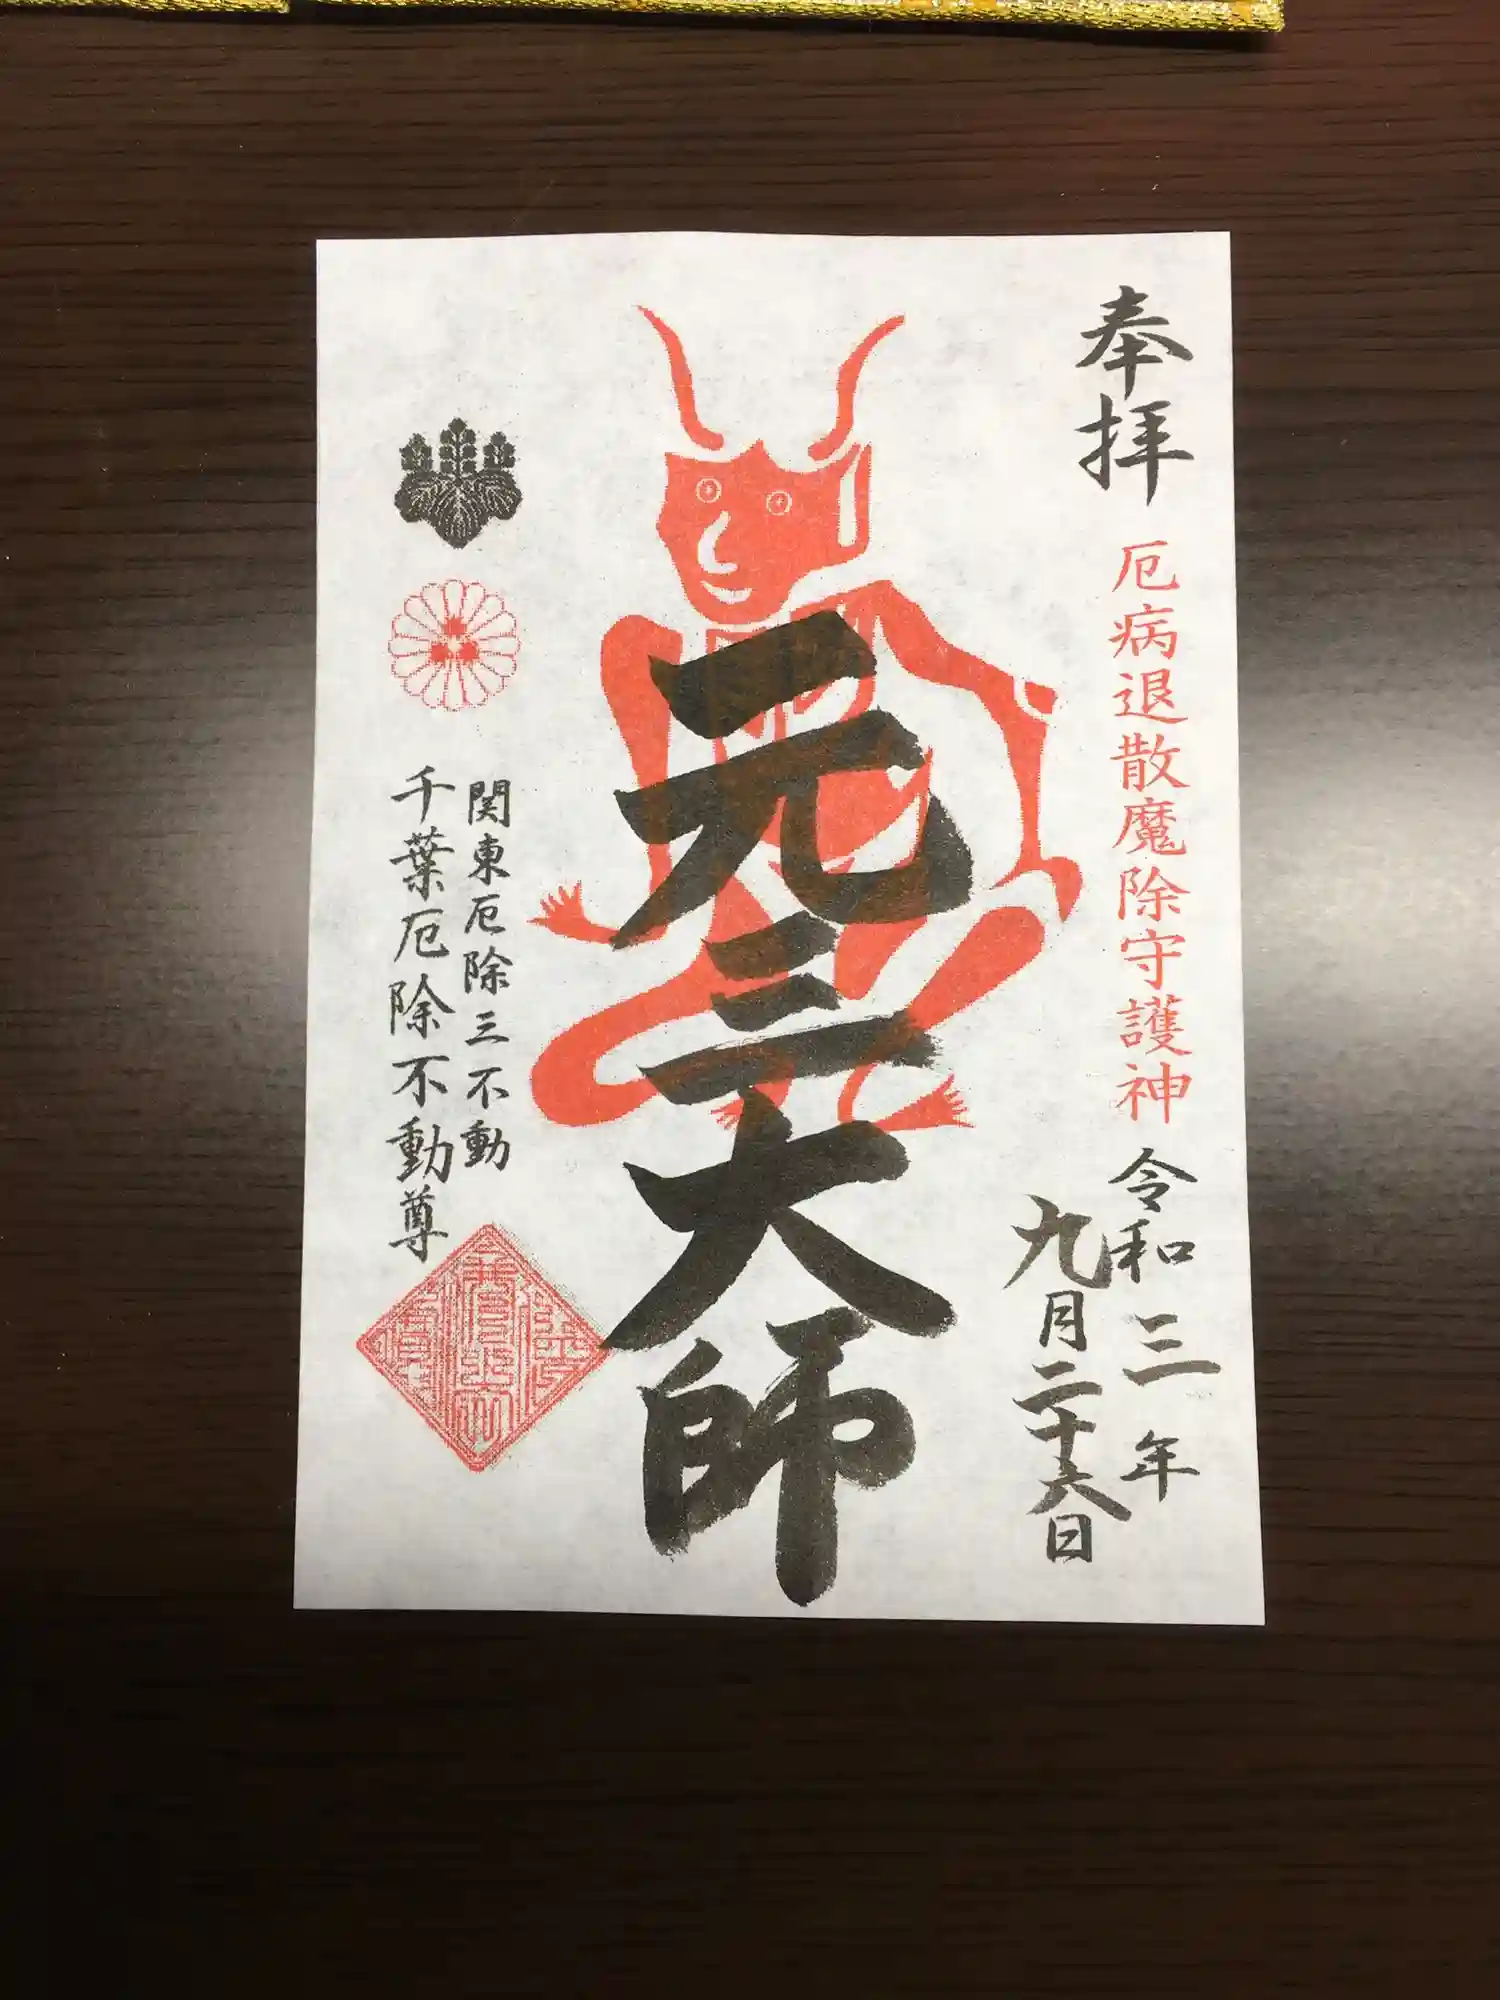 奉拝
厄病退散魔除守護神
令和三年
九月二十六日
元三大師
関東厄除三不動
千葉厄除不動尊